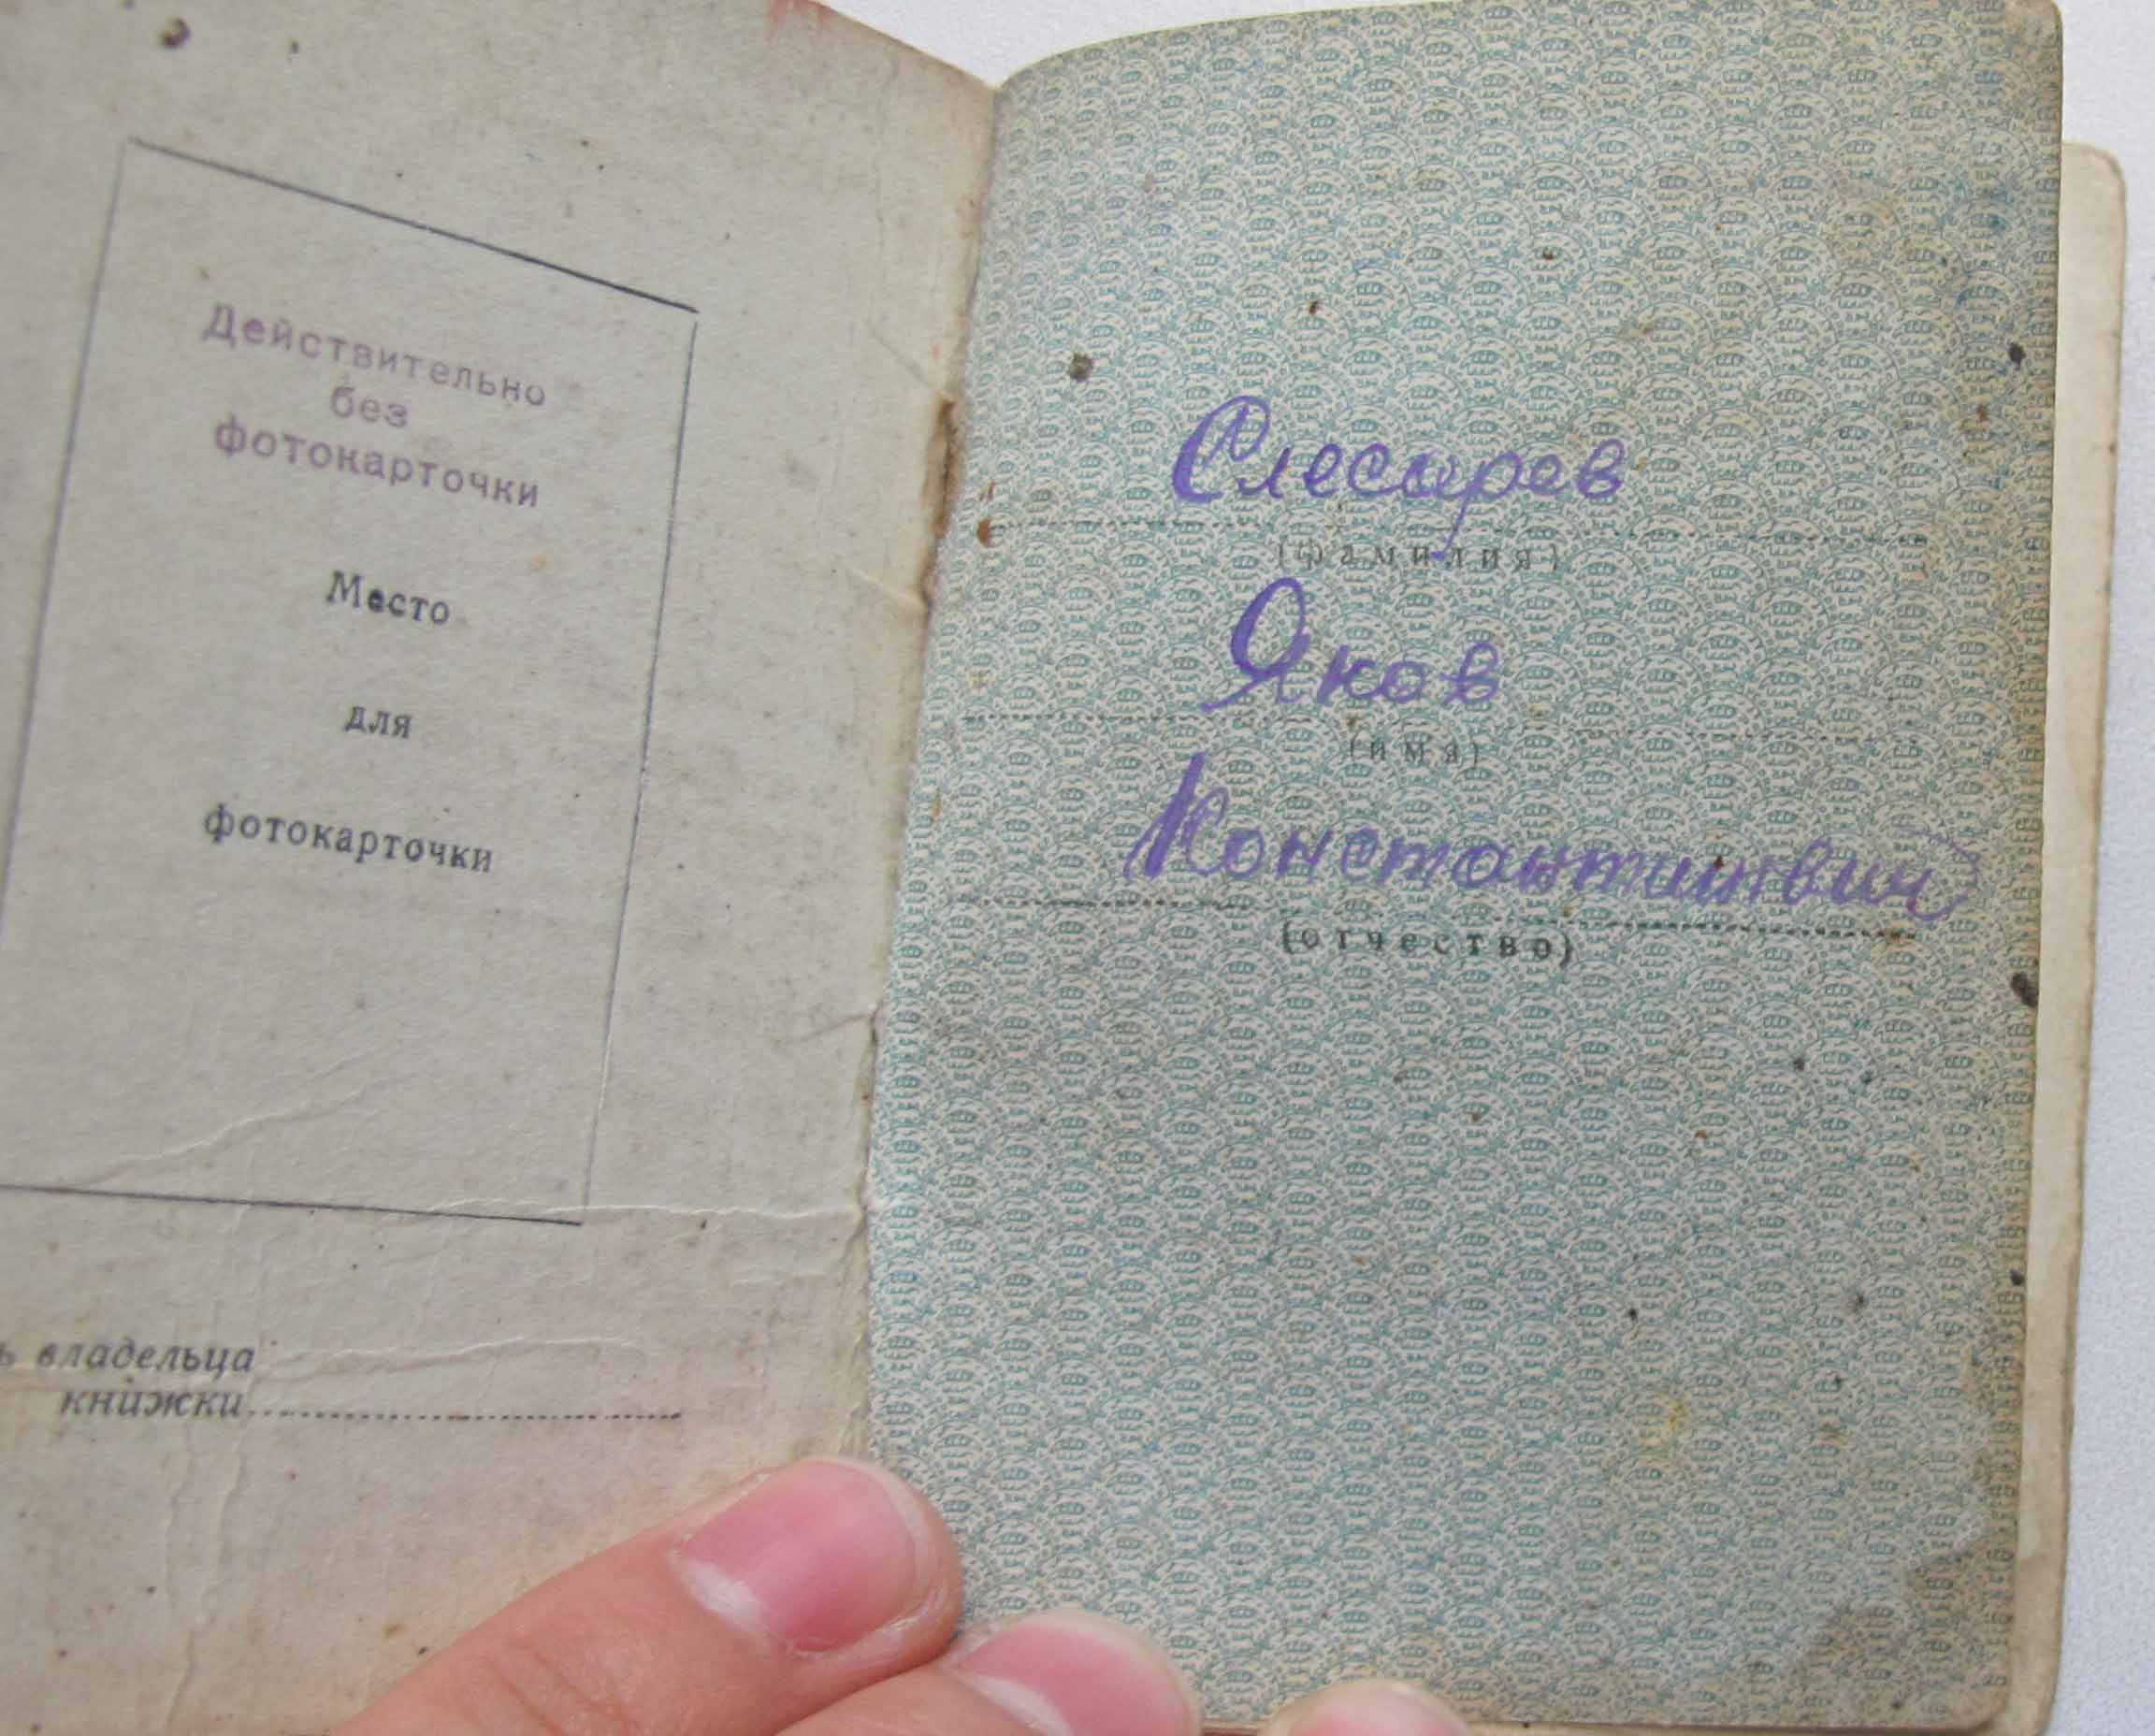 Действительно
без
фотокарточки
Место
для
фотокарточки
ь владельца
книжки
Слесарев
(фамилия)
Яков
(имя)
Константинвич
(отчество)